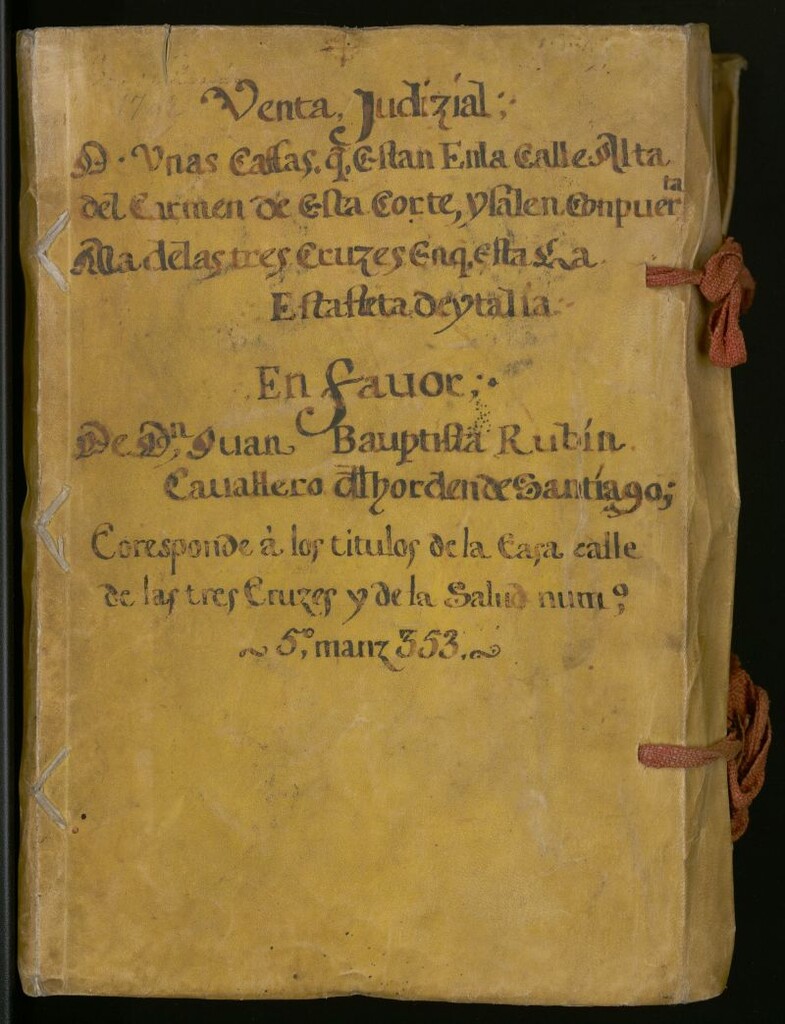 Venta, Judizial;
D. Vnas Cassas. q̃, Estan Enla Calle Alta
del Carmen de Esta Corte, y salen Conpuerta
Ala delas tres Cruzes Enq. esta La
Estafeta de ytalia
En favor;
De Dn. Juan Bauptista Rubín
Cauallero dlhorden de Santiago;
Coresponde à los titulos de la Casa calle
de las tres Cruzes y de la Salud num.º
5º, manz 353.